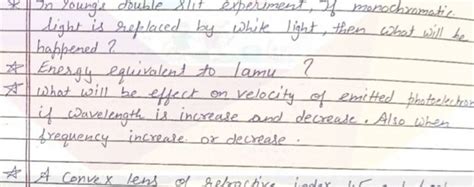 ☆ In Young's double slit experiment, If monochromatic
light is replaced by white light, then what will be
happened ?
☆ Energy equivalent to 1amu ?
☆ What will be effect on velocity of emitted photoelectron
if wavelength is increase and decrease. Also when
frequency increase or decrease.
☆ A Convex lens of refractive index